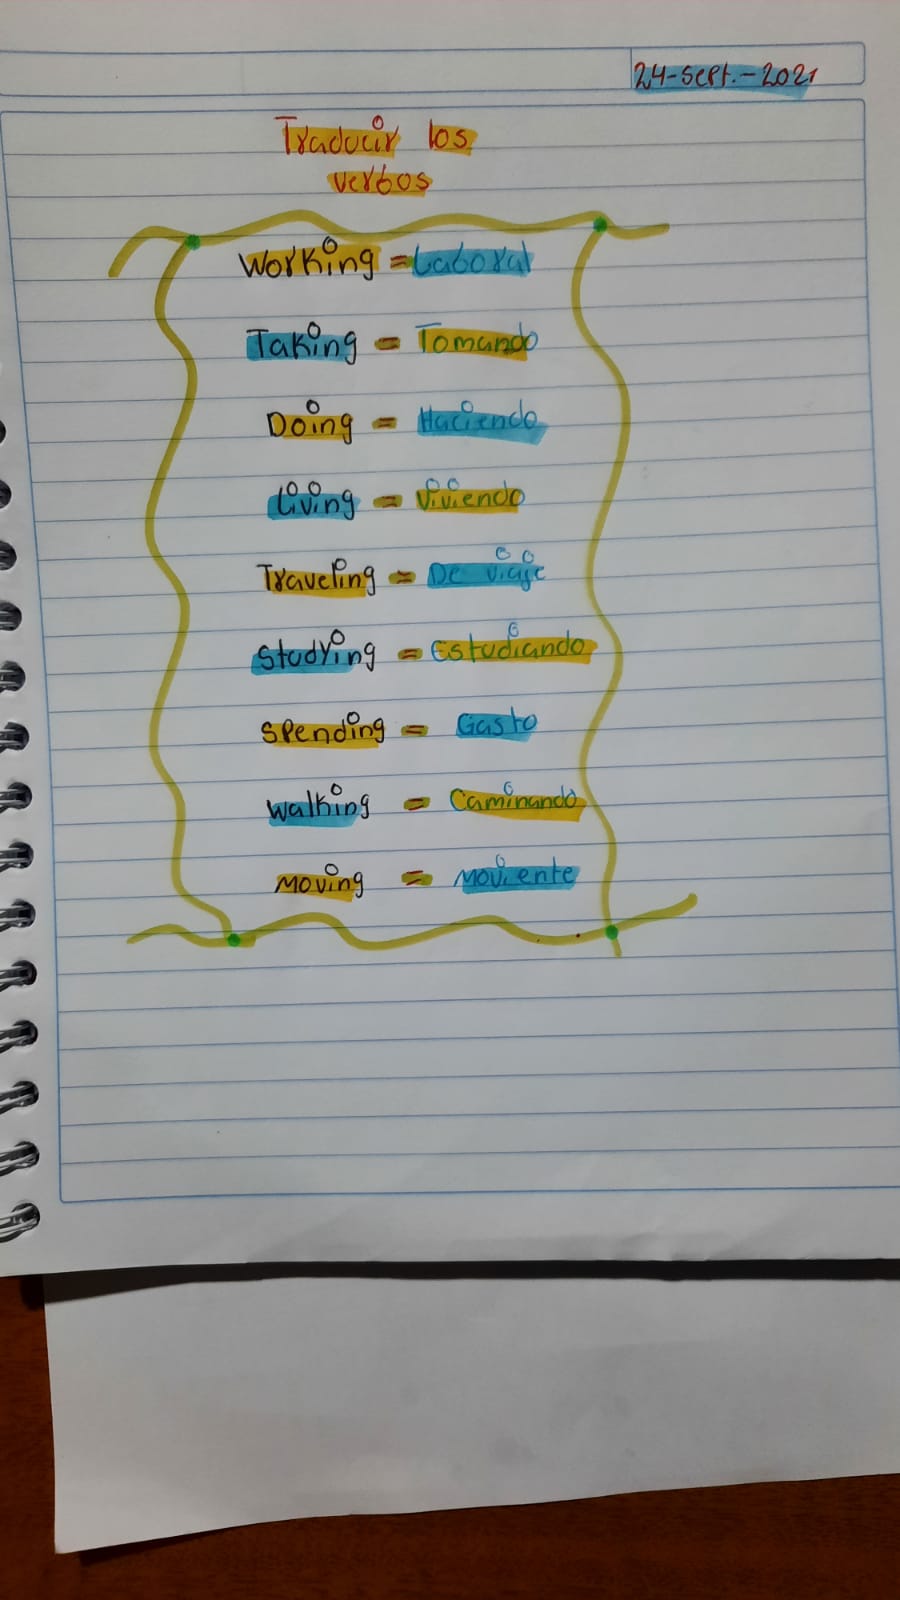 24-Sept.-2021
Traducir los
verbos
Working = Laboral
Taking = Tomando
Doing = Haciendo
Living = Viviendo
Traveling = De viaje
Studying = Estudiando
Spending = Gasto
Walking = Caminando
Moving = Moviente